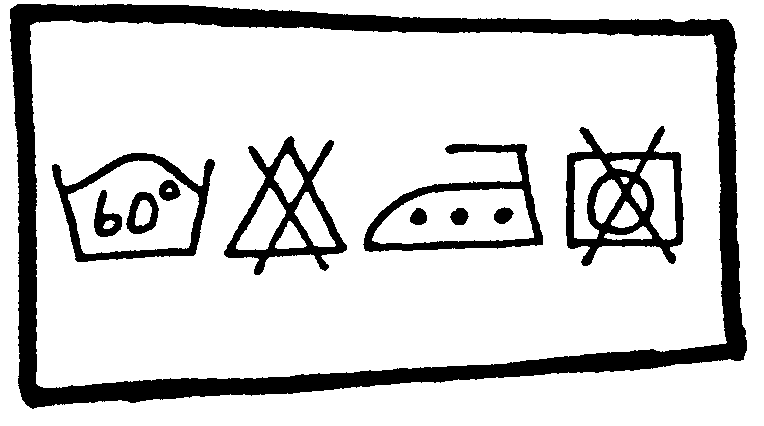 60°